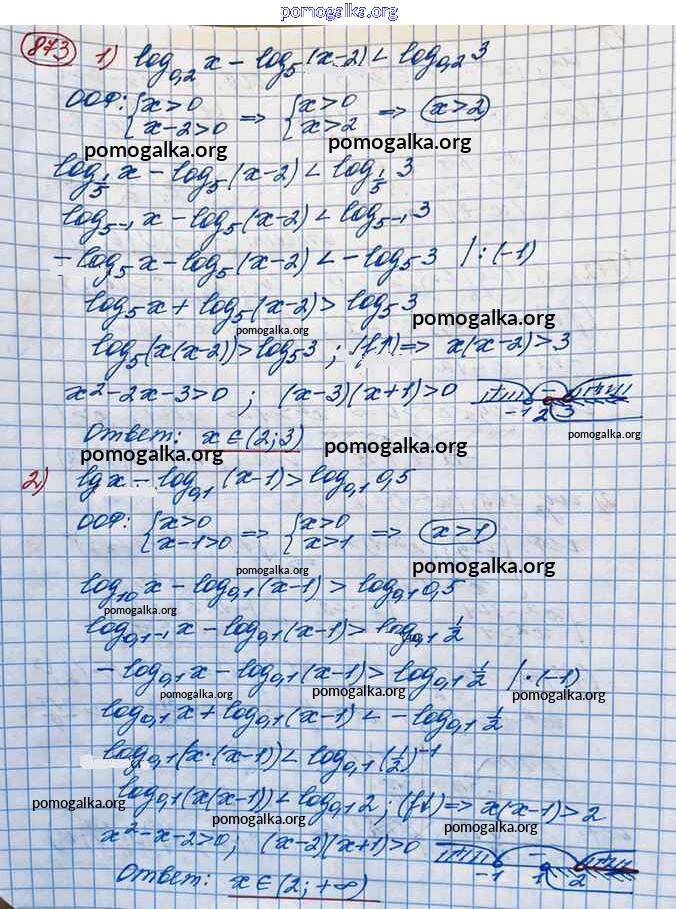 pomogalka.org
873 1) log₀,₂ x − log₅ (x−2) < log₀,₂ 3
ООФ: { x>0 x−2>0 => { x>0 x>2 => x>2
pomogalka.org pomogalka.org
log₁/₅ x − log₅ (x−2) < log₁/₅ 3
log₅₋₁ x − log₅ (x−2) < log₅₋₁ 3
− log₅ x − log₅ (x−2) < − log₅ 3 /:(−1)
log₅ x + log₅ (x−2) > log₅ 3
pomogalka.org pomogalka.org
log₅ (x(x−2)) > log₅ 3 ; (f↑) => x(x−2) > 3
x² − 2x − 3 > 0 ; (x−3)(x+1) > 0 − −1 2 3
Ответ: x ∈ (2; 3)
pomogalka.org pomogalka.org pomogalka.org
2) lg x − log₀,₁ (x−1) > log₀,₁ 0,5
ООФ: { x>0 x−1>0 => { x>0 x>1 => x>1
pomogalka.org pomogalka.org
log₁₀ x − log₀,₁ (x−1) > log₀,₁ 0,5
pomogalka.org
log₀,₁₋₁ x − log₀,₁ (x−1) > log₀,₁ 1/2
− log₀,₁ x − log₀,₁ (x−1) > log₀,₁ 1/2 /·(−1)
pomogalka.org pomogalka.org pomogalka.org
log₀,₁ x + log₀,₁ (x−1) < − log₀,₁ 1/2
log₀,₁ (x·(x−1)) < log₀,₁ (1/2)⁻¹
log₀,₁ (x(x−1)) < log₀,₁ 2 ; (f↓) => x(x−1) > 2
pomogalka.org pomogalka.org pomogalka.org
x² − x − 2 > 0 ; (x−2)(x+1) > 0 − −1 1 2
Ответ: x ∈ (2; +∞)